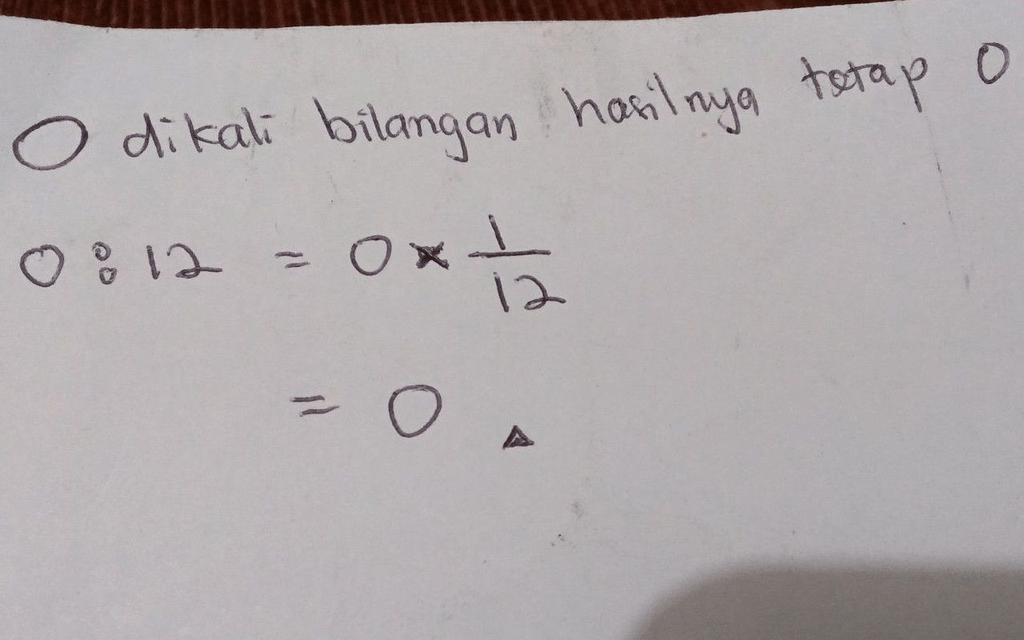 0 dikali bilangan hasilnya tetap 0
0 : 12 = 0 × 1/12
= 0